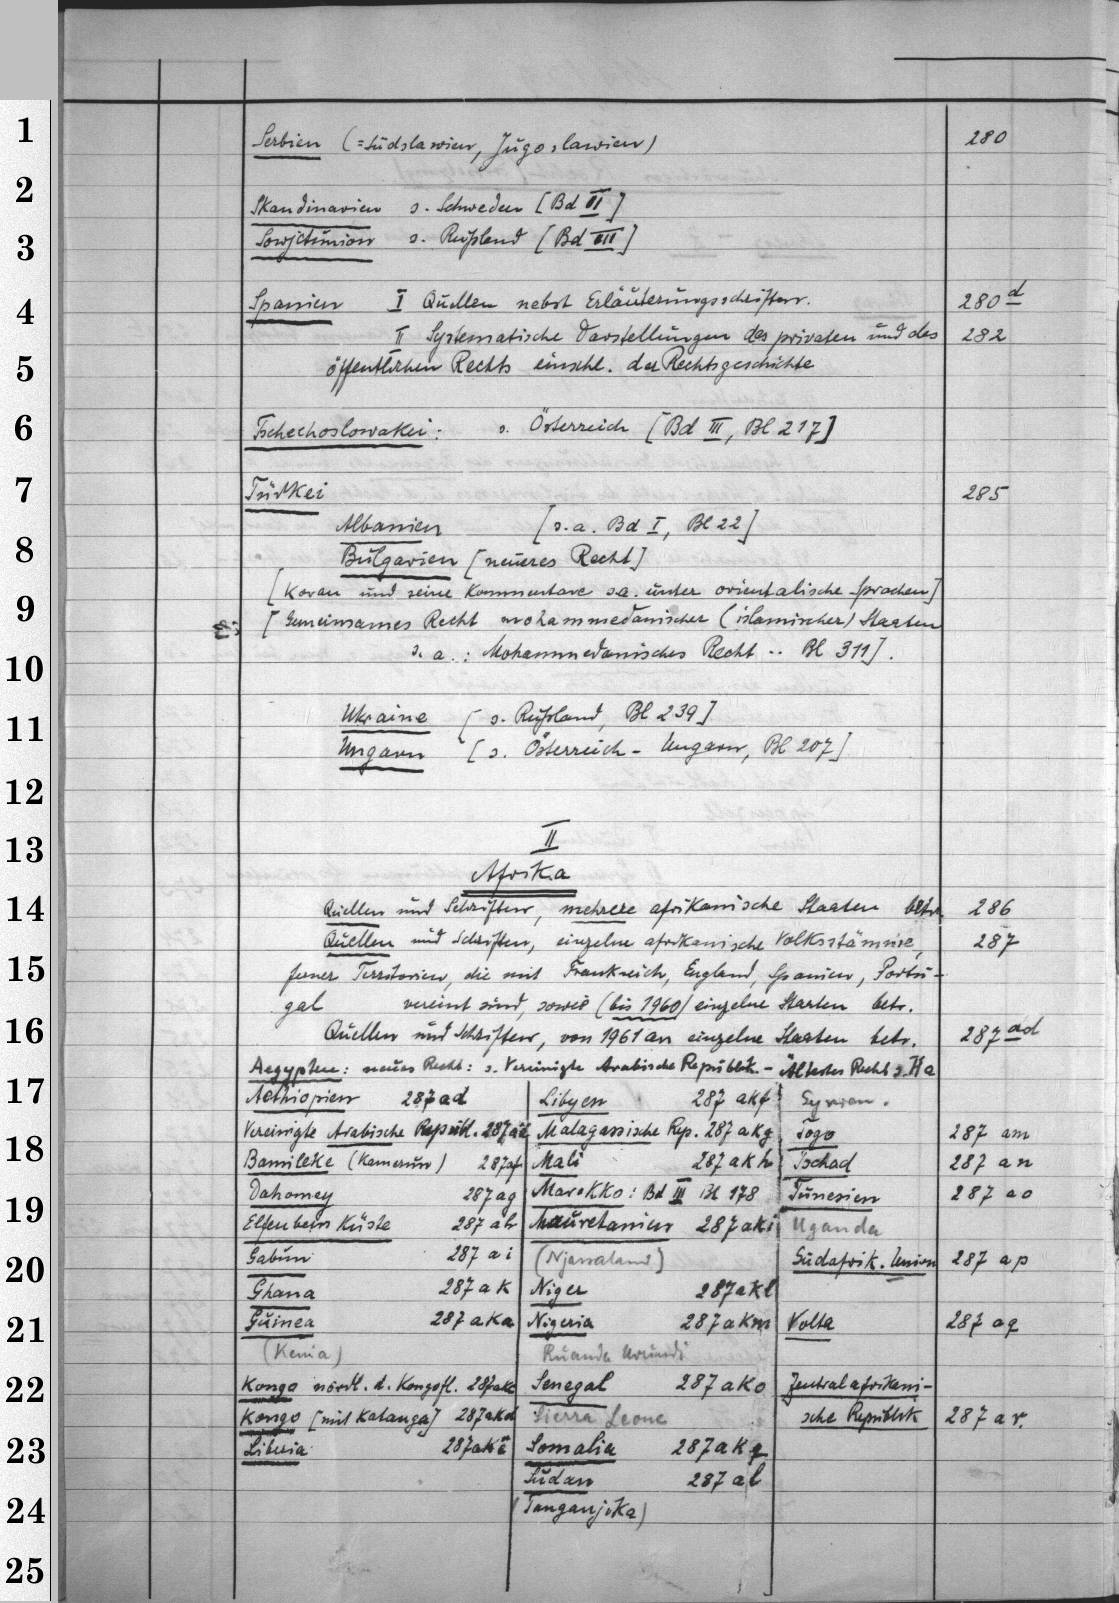 1 Serbien (= Südslawien, Jugoslawien) 280
2 Skandinavien s. Schweden [Bd III]
3 Sowjetunion s. Rußland [Bd III]
4 Spanien I Quellen nebst Erläuterungsschriften. 280d
II Systematische Darstellungen des privaten und des 282
5 öffentlichen Rechts einschl. der Rechtsgeschichte
6 Tschechoslowakei: s. Österreich [Bd III, Bl 217]
7 Türkei 285
Albanien [s. a. Bd I, Bl 22]
8 Bulgarien [neueres Recht]
[Koran und seine Kommentare s.a. unter orientalische Sprachen]
9 [Gemeinsames Recht mohammedanischer (islamischer) Staaten
10 s. a.: Mohammedanisches Recht .. Bl 311].
11 Ukraine [s. Rußland, Bl 239]
Ungarn [s. Österreich-Ungarn, Bl 207]
12
13 II
Afrika
14 Quellen und Schriften, mehrere afrikanische Staaten betr. 286
Quellen und Schriften, einzelne afrikanische Volksstämme, 287
15 ferner Territorien, die mit Frankreich, England, Spanien, Portu-
gal vereint sind, sowie (bis 1960) einzelne Staaten betr.
16 Quellen und Schriften, von 1961 an einzelne Staaten betr. 287ad
Aegypten: neues Recht: s. Vereinigte Arabische Republik. - Ältestes Recht s. II a
17 Aethiopien 287ad Libyen 287 akf Syrien.
Vereinigte Arabische Republ. Malagassische Rep. 287 akg Togo 287 am
18 Bamileke (Kamerun) 287af Mali 287 akh Tschad 287 an
Dahomey 287ag Marokko: Bd III Bl 178 Tunesien 287 ao
19 Elfenbein Küste 287 ah Mauretanien 287aki Uganda
Gabun 287 ai (Njassaland) Südafrik. Union 287 ap
20 Ghana 287 ak Niger 287akl
21 Guinea 287 aka Nigeria 287 akm Volta 287 aq
(Kenia) Ruanda Urundi
22 Kongo nördl. d. Kongofl. 287akc Senegal 287 ako Zentralafrikani-
Kongo [mit Katanga] 287akd Sierra Leone sche Republik 287 ar.
23 Liberia Somalia 287akq
Sudan 287 al
24 (Tanganjika)
25